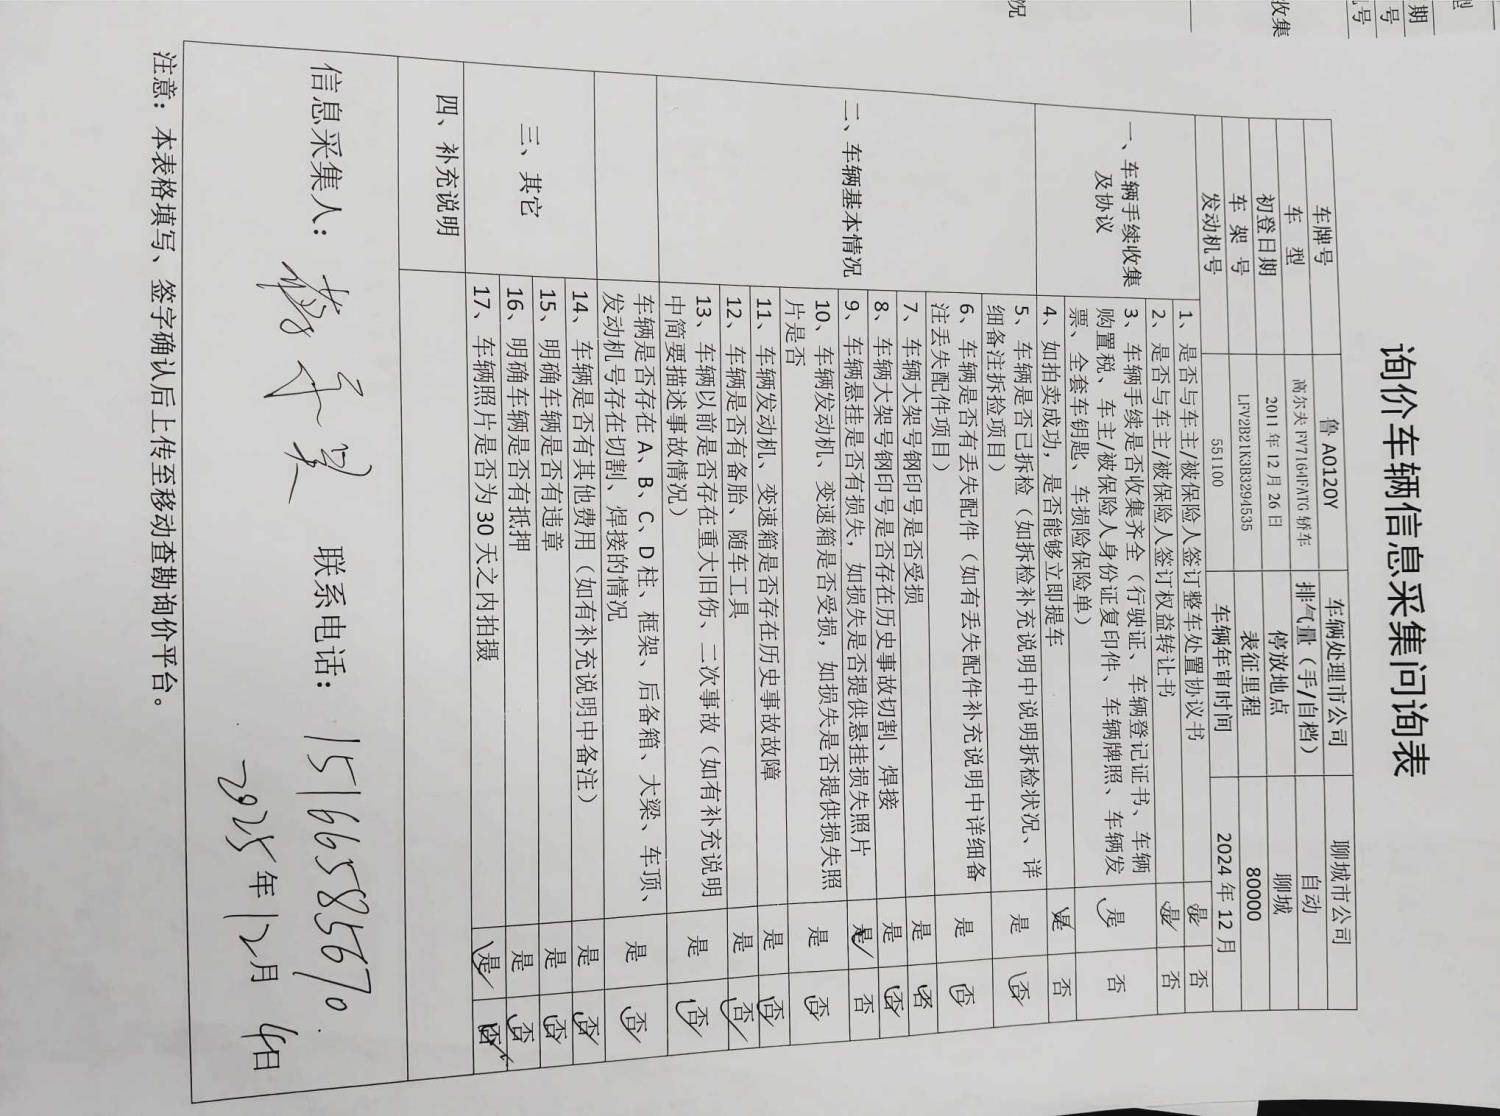 询价车辆信息采集问询表
车牌号 鲁 A0120Y 车辆处理市公司 聊城市公司
车 型 高尔夫 FV7164FATG 轿车 排气量（手/自档） 自动
初登日期 2011 年 12 月 26 日 停放地点 聊城
车 架 号 LFV2B21K3B3294535 表征里程 80000
发动机号 551100 车辆年审时间 2024 年 12 月
一、车辆手续收集
及协议
1、是否与车主/被保险人签订整车处置协议书 是 否
2、是否与车主/被保险人签订权益转让书 是 否
3、车辆手续是否收集齐全（行驶证、车辆登记证书、车辆
购置税、车主/被保险人身份证复印件、车辆牌照、车辆发
票、全套车钥匙、车损险保险单） 是 否
4、如拍卖成功，是否能够立即提车 是 否
二、车辆基本情况
5、车辆是否已拆检（如拆检补充说明中说明拆检状况、详
细备注拆检项目） 是 否
6、车辆是否有丢失配件（如有丢失配件补充说明中详细备
注丢失配件项目） 是 否
7、车辆大架号钢印号是否受损 是 否
8、车辆大架号钢印号是否存在历史事故切割、焊接 是 否
9、车辆悬挂是否有损失，如损失是否提供悬挂损失照片 是 否
10、车辆发动机、变速箱是否受损，如损失是否提供损失照
片是否 是 否
11、车辆发动机、变速箱是否存在历史事故故障 是 否
12、车辆是否有备胎、随车工具 是 否
13、车辆以前是否存在重大旧伤、二次事故（如有补充说明
中简要描述事故情况） 是 否
车辆是否存在 A、B、C、D 柱、框架、后备箱、大梁、车顶、
发动机号存在切割、焊接的情况 是 否
三、其它
14、车辆是否有其他费用（如有补充说明中备注） 是 否
15、明确车辆是否有违章 是 否
16、明确车辆是否有抵押 是 否
17、车辆照片是否为 30 天之内拍摄 是 否
四、补充说明
信息采集人： 联系电话：15166585670
2025年12月4日
注意：本表格填写、签字确认后上传至移动查勘询价平台。
型
期
号
号
收集
况